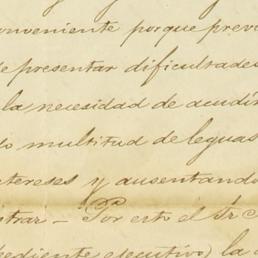 conveniente porque prev
presentar dificultades
la necesidad de acudir
do multitud de leguas
tereses y ausentando
trar – Por esto el Sr C
pediente ejecutivo) la